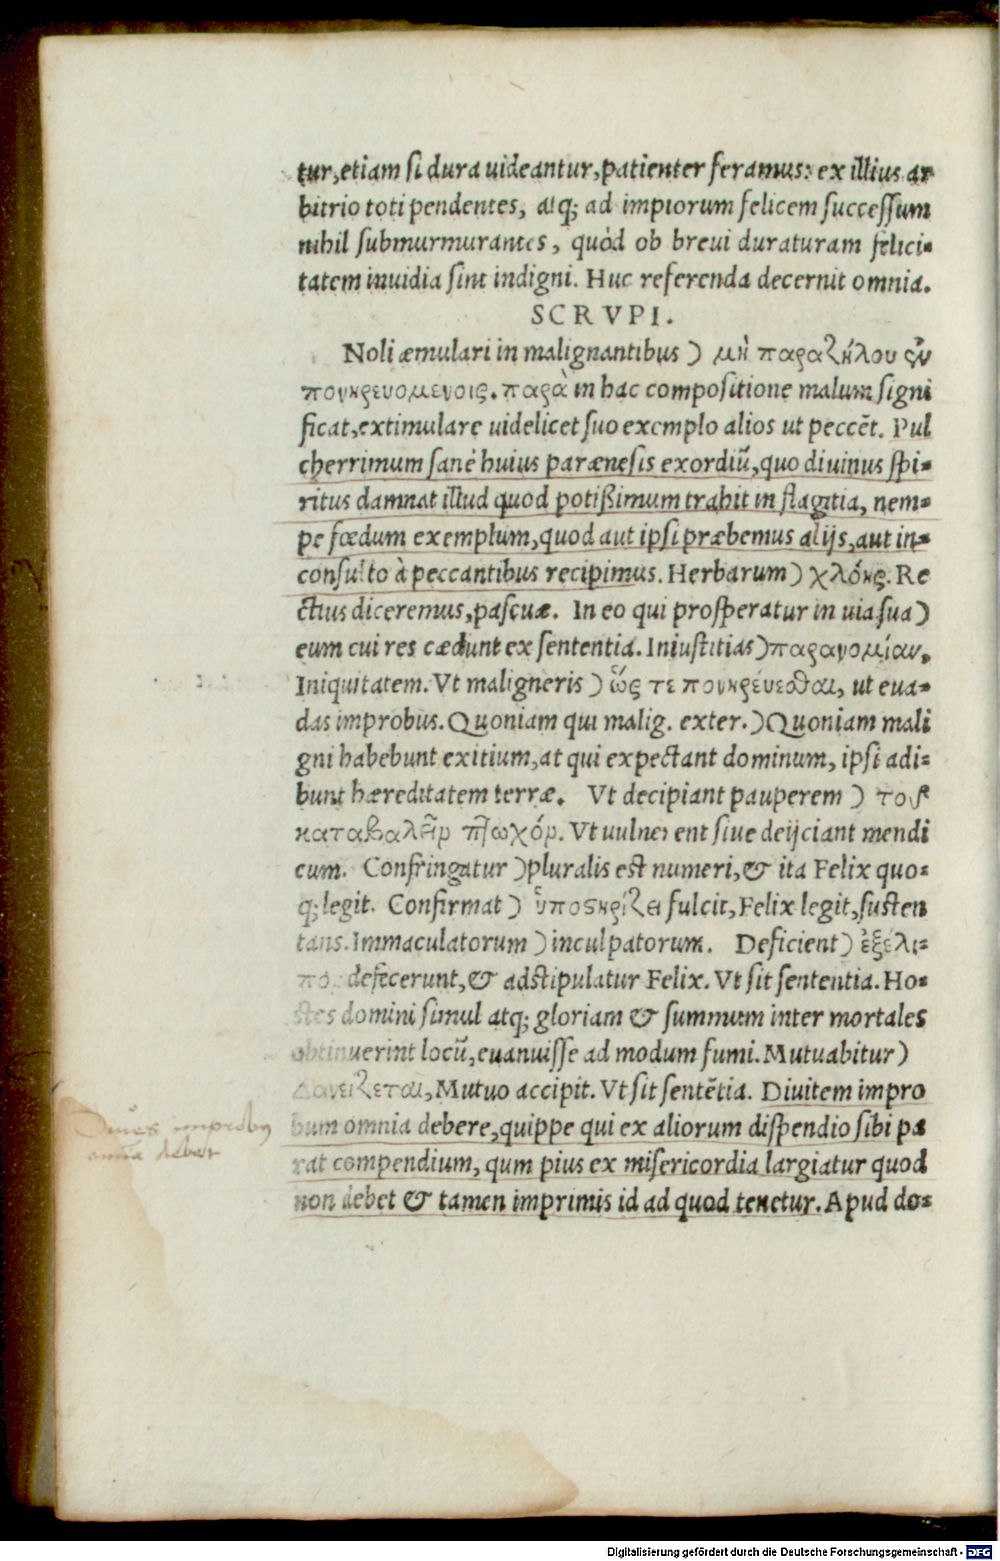 tur, etiam si dura uideantur, patienter feramus: ex illius ar
bitrio toti pendentes, atq; ad impiorum felicem successum
nihil submurmurantes, quòd ob breui duraturam felici-
tatem inuidia sint indigni. Huc referenda decernit omnia.
SCRVPI.
Noli æmulari in malignantibus) μὴ παραζήλου ἐν
πονηρευομενοις. παρὰ in hac compositione malum signi
ficat, extimulare uidelicet suo exemplo alios ut peccẽt. Pul
cherrimum sanè huius parænesis exordiũ, quo diuinus spi-
ritus damnat illud quod potißimum trahit in flagitia, nem-
pe fœdum exemplum, quod aut ipsi præbemus alijs, aut in-
consulto à peccantibus recipimus. Herbarum) χλόης. Re
ctius diceremus, pascuæ. In eo qui prosperatur in uia sua)
eum cui res cædunt ex sententia. Iniustitias) παρανομίαν.
Iniquitatem. Vt maligneris) ὥς τε πονηρέυεσθαι, ut eua-
das improbus. Quoniam qui malig. exter.) Quoniam mali
gni habebunt exitium, at qui expectant dominum, ipsi adi-
bunt hæreditatem terræ. Vt decipiant pauperem) τοῦ
καταβαλεῖν πτωχόν. Vt uulnerent siue deijciant mendi
cum. Confringatur) pluralis est numeri, & ita Felix quo-
q; legit. Confirmat) ὑποστηρίζει fulcit, Felix legit, susten
tans. Immaculatorum) inculpatorum. Deficient) ἐξέλι-
πον defecerunt, & adstipulatur Felix. Vt sit sententia. Ho-
stes domini simul atq; gloriam & summum inter mortales
obtinuerint locũ, euanuisse ad modum fumi. Mutuabitur)
Δανείζεται, Mutuo accipit. Vt sit sentẽtia. Diuitem impro
bum omnia debere, quippe qui ex aliorum dispendio sibi pa
rat compendium, qum pius ex misericordia largiatur quod
non debet & tamen imprimis id ad quod tenetur. Apud do-
Diues improbus
omnia debet
Digitalisierung gefördert durch die Deutsche Forschungsgemeinschaft - DFG